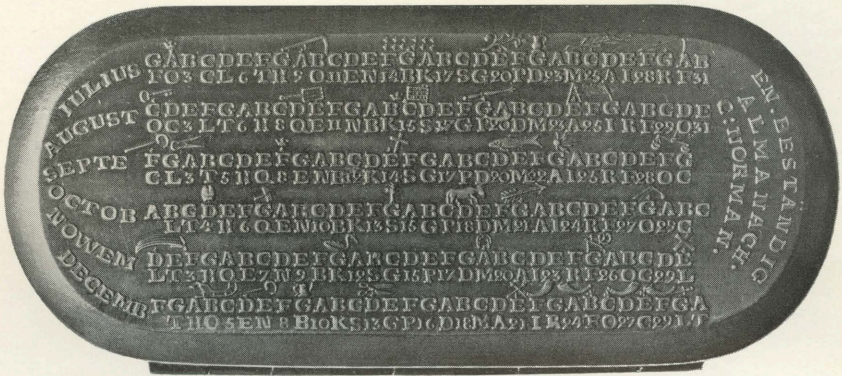 JULIUS GABCDEFGABCDEFGABCDEFGABCDEFGAB
FO3CL6TH9Q11EN14BK17SG20PD23M25AI28RF31
AUGUST CDEFGABCDEFGABCDEFGABCDEFGABCDE
OC3LT6H8QE11NBK15S17GP20DM23A25IRF29O31
SEPTE FGABCDEFGABCDEFGABCDEFGABCDEFG
CL3T5HQ8ENB12K14SG17PD20M22AI25RF28OC
OCTOB ABCDEFGABCDEFGABCDEFGABCDEFGABC
LT4H6QEN10BK13S15GP18DM21AI24RF27O29C
NOWEM DEFGABCDEFGABCDEFGABCDEFGABCDE
LT3HQE7N9BK12SG15P17DM20AI23RF26OC29L
DECEMB FGABCDEFGABCDEFGABCDEFGABCDEFGA
THQ5EN8B10KS13GP16D18MA21IR24FO27C29LT
EN·BESTÄNDIG
ALMANACH.
C:NORMAN.